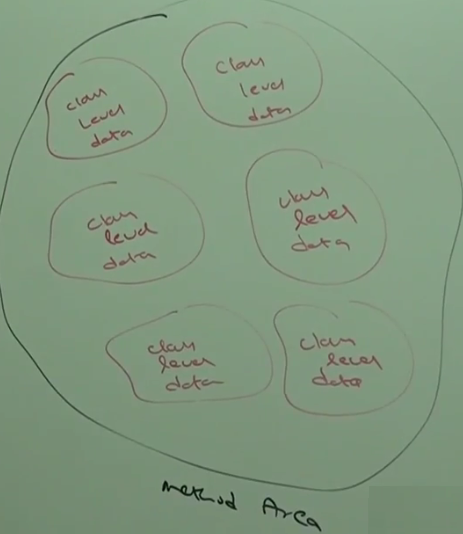 class
level
data
class
level
data
class
level
data
class
level
data
class
level
data
class
level
data
Method Area